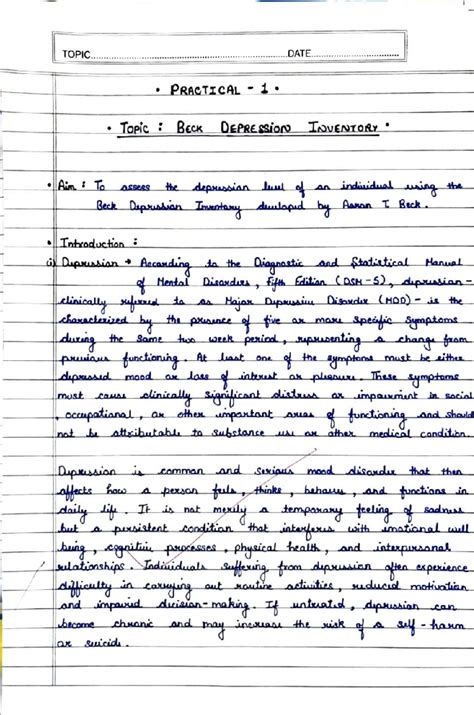 TOPIC.......................................................DATE...........................
• PRACTICAL - 1 •
• TOPIC : BECK DEPRESSION INVENTORY •
• Aim : To assess the depression level of an individual using the
Beck Depression Inventory developed by Aaron T. Beck.
• Introduction :
(i) Depression → According to the Diagnostic and Statistical Manual
of Mental Disorders, Fifth Edition (DSM-5), depression -
clinically referred to as Major Depressive Disorder (MDD) - is the
characterized by the presence of five or more specific symptoms
during the same two week period, representing a change from
previous functioning. At least one of the symptoms must be either
depressed mood or loss of interest or pleasure. These symptoms
must cause clinically significant distress or impairment in social
, occupational, or other important areas of functioning and should
not be attributable to substance use or other medical condition.
Depression is common and serious mood disorder that then
affects how a person feels, thinks, behaves, and functions in
daily life. It is not merely a temporary feeling of sadness
but a persistent condition that interferes with emotional well
being, cognitive processes, physical health, and interpersonal
relationships. Individuals suffering from depression often experience
difficulty in carrying out routine activities, reduced motivation
and impaired decision-making. If untreated, depression can
become chronic and may increase the risk of a self-harm
or suicide.